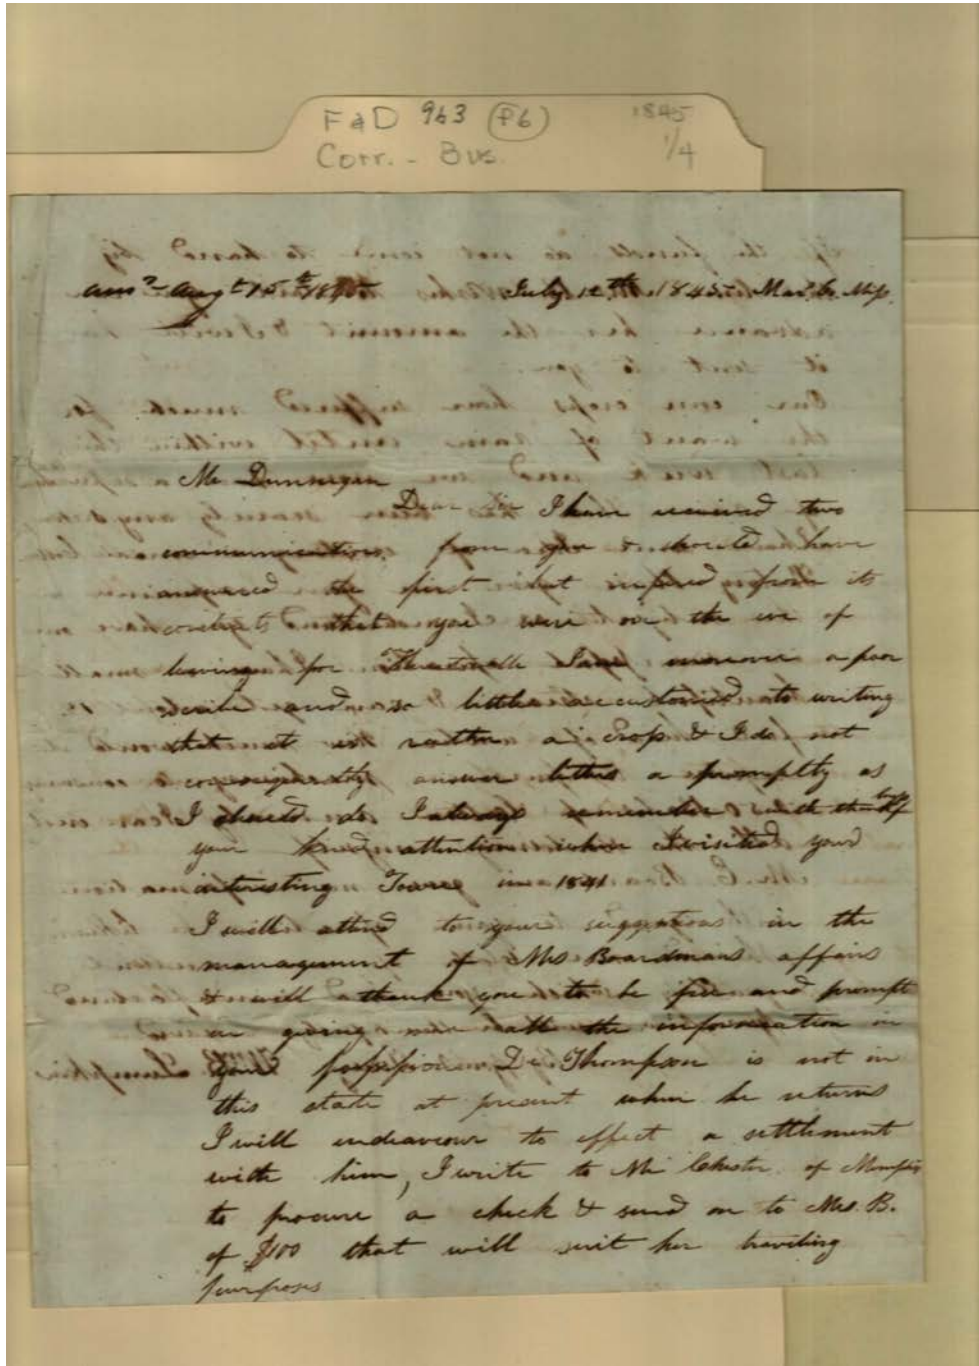 F & D 963 (P6) 1845
Corr. - Bus. 1/4
Ansd Augt 15th 1845 July 12th 1845 Mar. Co. Mip.
Mr Dunnegan
Dear Sir I have received two
communications from you & should have
answered the first but infered from its
contents that you were on the eve of
leaving for I am moreover a poor
scribe and so little accustomed to writing
that it is rather a & I do not
answer letters a promptly as
I should do I always remember with
your kind attention when I visited your
interesting Town in 1841
I will attend to your suggestions in the
management of Mrs Boardmans affairs
& will thank you to be free and prompt
in giving me all the information in
your possession Dr Thompson is not in
this state at present when he returns
I will endeavour to effect a settlement
with him, I write to Mr Chester of Memphis
to procure a check & send on to Mrs. B.
of $100 that will suit her traviling
purposes